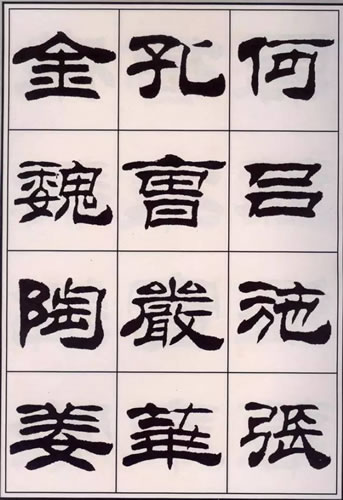 何呂施張
孔曹嚴華
金魏陶姜